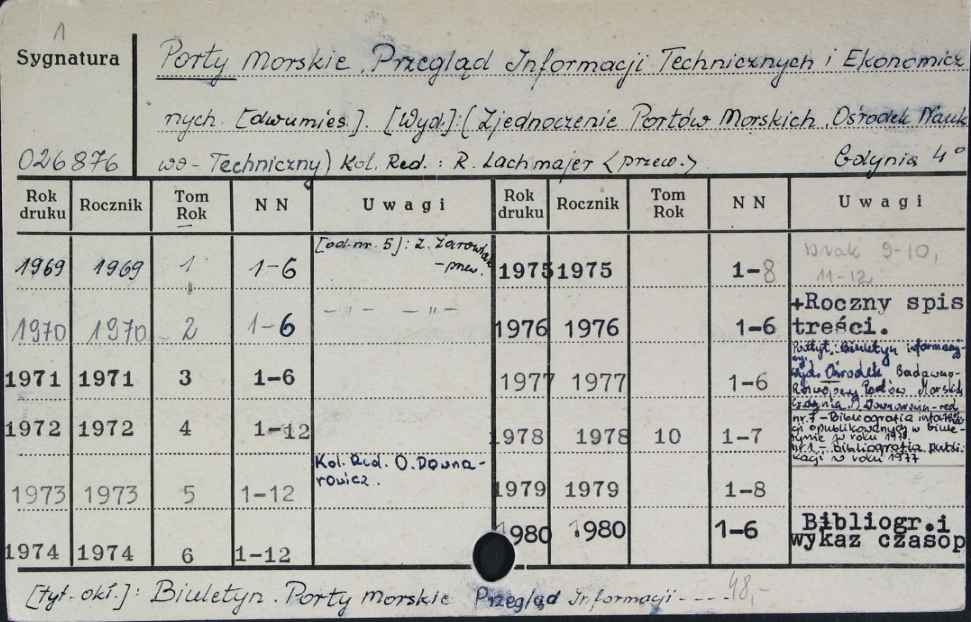 1
Sygnatura
Porty Morskie. Przegląd Informacji Technicznych i Ekonomicz
nych. [dwumies.]. [Wyd]:(Zjednoczenie Portów Morskich. Ośrodek Nauk
026876 wo-Techniczny) Kol. Red.: R. Lachmajer <przew.> Gdynia 4°
Rok druku Rocznik Tom Rok NN Uwagi Rok druku Rocznik Tom Rok NN Uwagi
1969 1969 1 1-6 [od nr. 5]: Z. -przew. 1975 1975 1-8 brak 9-10, 11-12
1970 1970 2 1-6 -"- -"- 1976 1976 1-6 +Roczny spis treści.
1971 1971 3 1-6 1977 1977 1-6 Podtyt.: Biuletyn informacyj-
ny.
Wyd. Ośrodek Badawczo-
Rozwojowy Portów Morskich
Gdynia O. Downarowicz-red
1972 1972 4 1-12 1978 1978 10 1-7 nr.7-Bibliografia
opublikowanych w biule-
tynie w roku 1978.
nr.1-bibliografia publi-
kacji w roku 1977
1973 1973 5 1-12 Kol. Red. O. Downa-
rowicz. 1979 1979 1-8
1974 1974 6 1-12 1980 1980 1-6 Bibliogr.i
wykaz czasop
[tyt. okł.]: Biuletyn. Porty Morskie Przegląd Informacji - - - -48,-